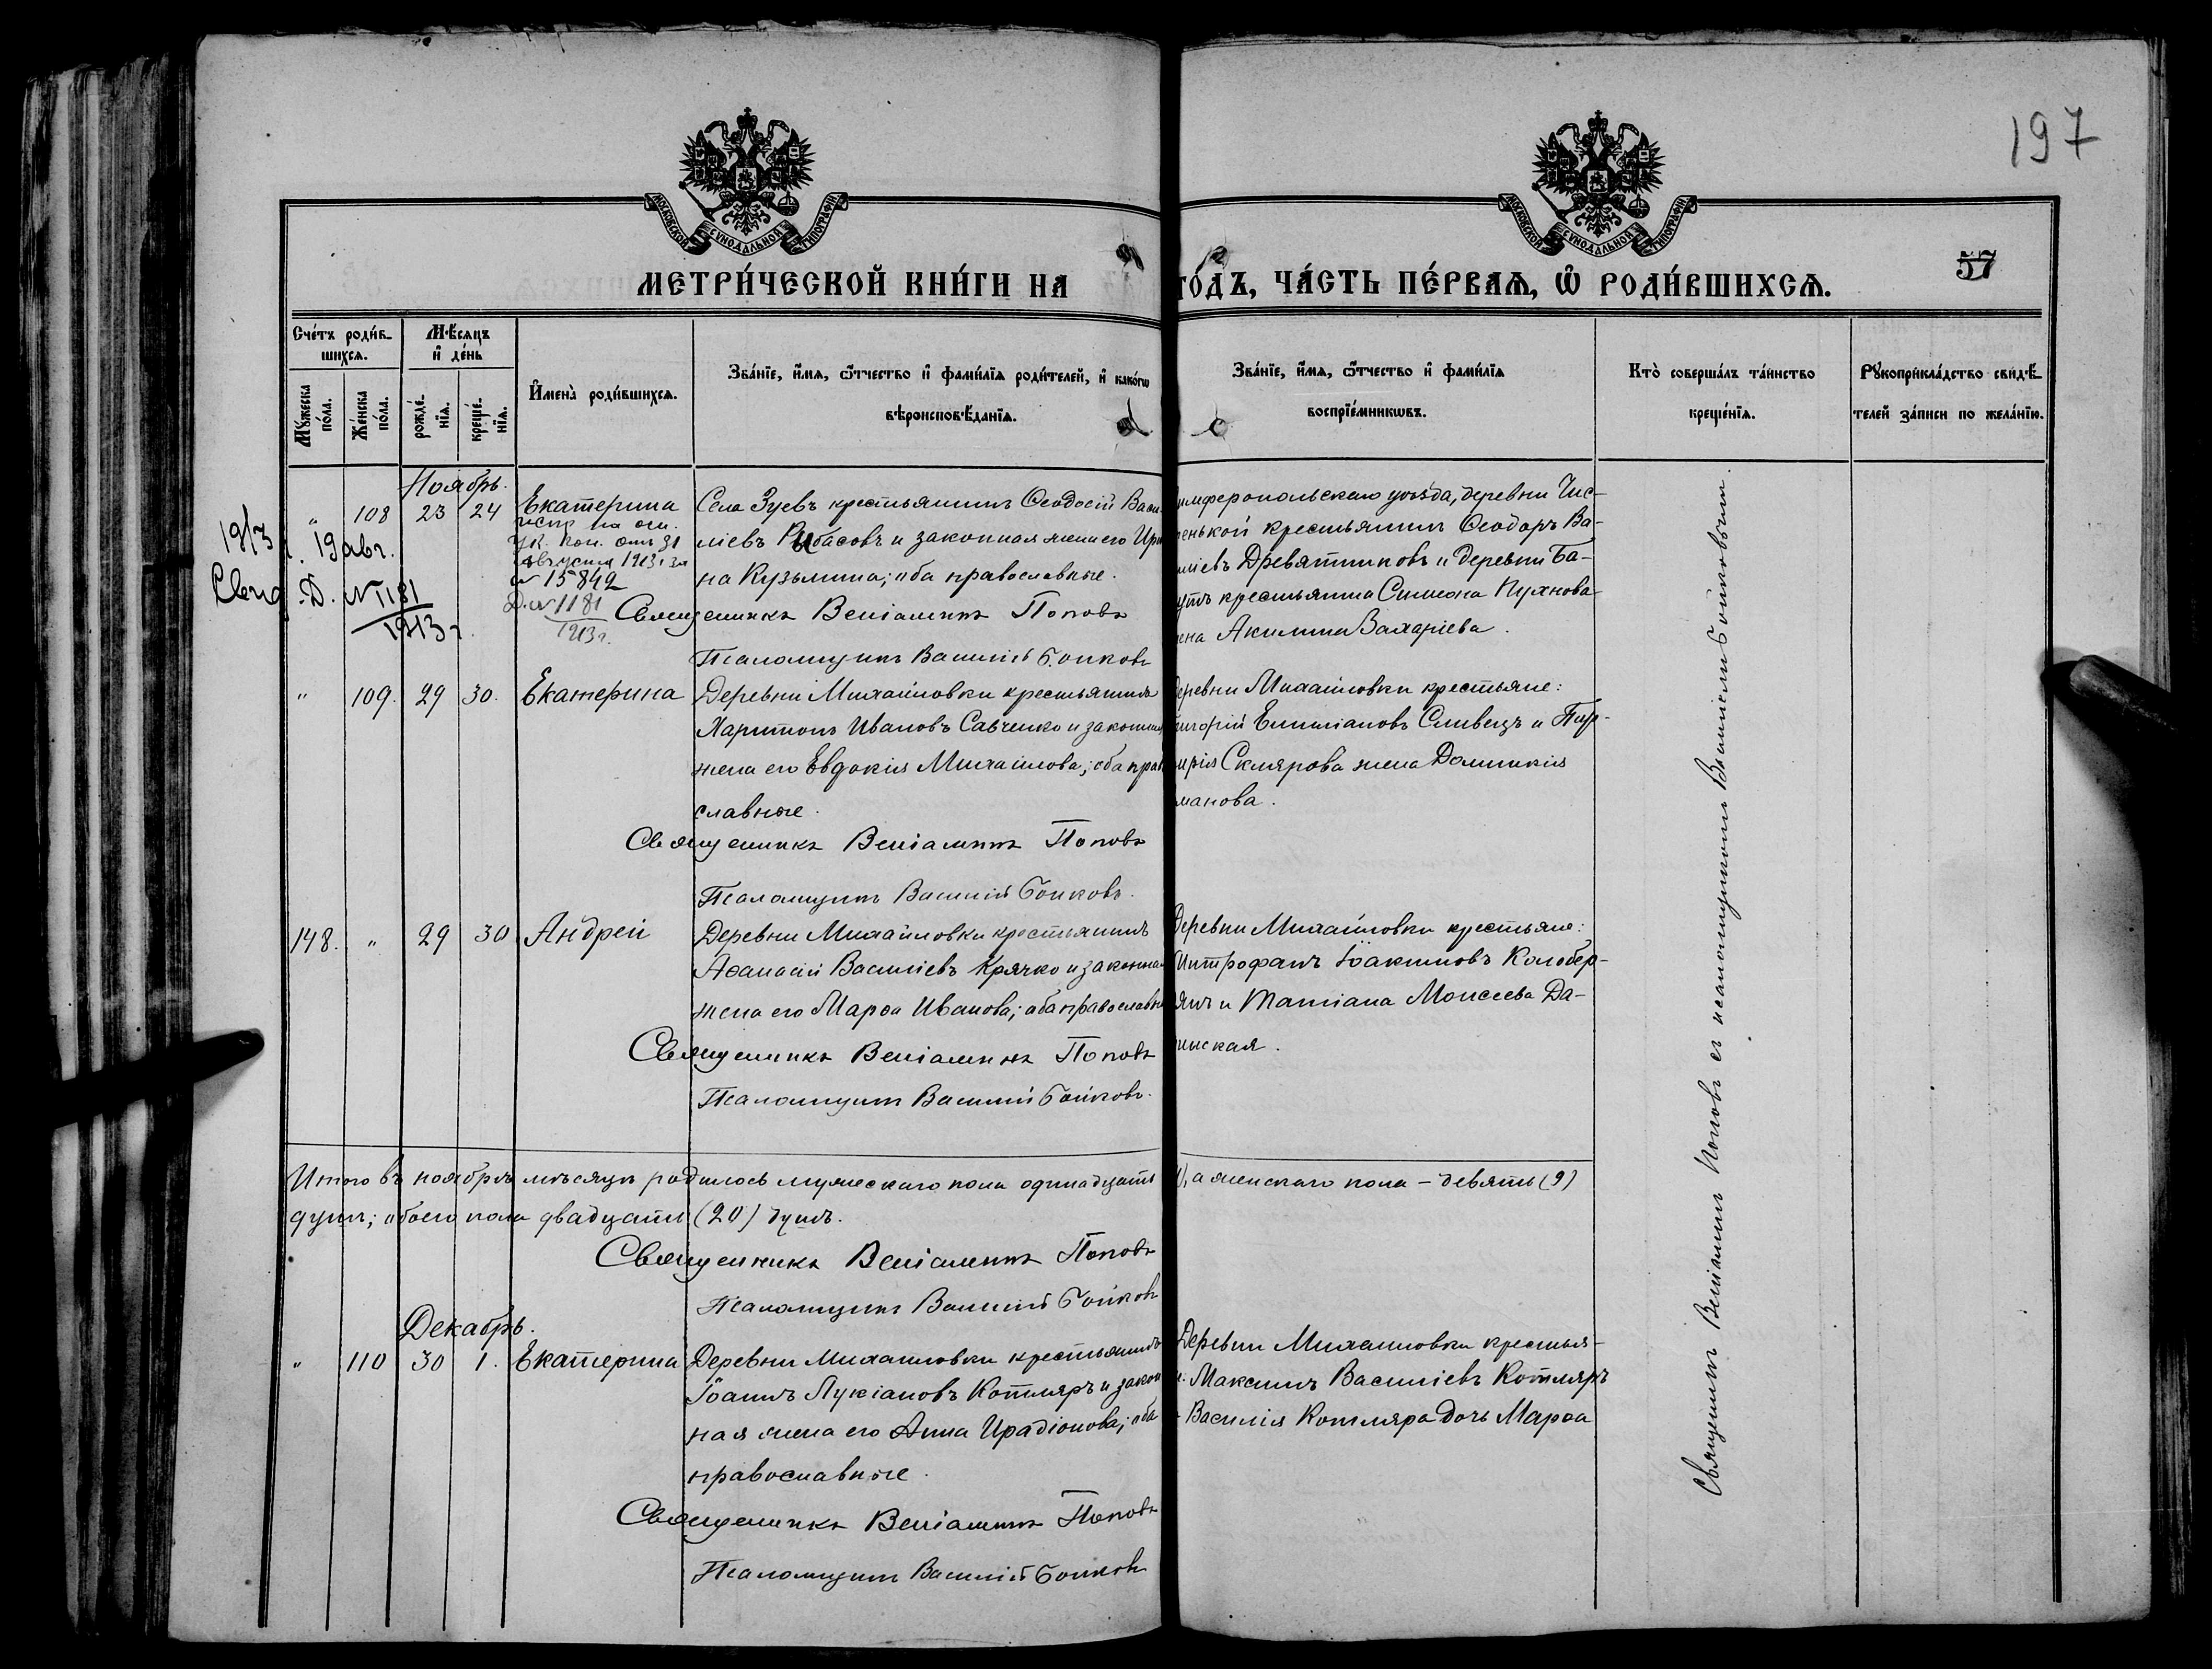 197
МОСКОВСКОЙ СѴНОДАЛЬНОЙ ТИПОГРАФІИ
МОСКОВСКОЙ СѴНОДАЛЬНОЙ ТИПОГРАФІИ
57
МЕТРИ́ЧЕСКОЙ КНИ́ГИ НА
ГО́ДЪ, ЧА́СТЬ ПЕ́РВАѦ, Ѿ РОДИ́ВШИХСѦ.
Сче́тъ роди́в-
шихсѧ.
Мѣ́сѧцъ
и҆ де́нь
Мꙋ́жеска по́ла.
Же́нска по́ла.
рожде́-нїѧ.
креще́-нїѧ.
И҆мена̀ роди́вшихсѧ.
Зва́нїе, и҆́мѧ, ѻ҆́тчество и҆ фами́лїѧ роди́телей, и҆ како́гѡ
вѣроисповѣ́данїѧ.
Зва́нїе, и҆́мѧ, ѻ҆́тчество и҆ фами́лїѧ
воспрїе́мникѡвъ.
Кто̀ соверша́лъ та́инство
креще́нїѧ.
Рꙋкоприкла́дство свидѣ́-
телей за́писи по жела́нїю.
Ноябрь.
" 108 23 24 Екатерина
Села Зуевъ крестьянинъ Ѳеодосій Васи-
ліевъ Рыбасовъ и законная жена его Ири-
на Кузьмина; оба православные.
Священникъ Веніаминъ Поповъ
Псаломщикъ Василій Бойковъ
имферопольскаго уѣзда, деревни Чис-
тенькой крестьянинъ Ѳеодоръ Ва-
иліевъ Древятниковъ и деревни Ба-
утъ крестьянина Симеона Пухнова
ена Акилина Захаріева.
1913 г. 19 авг.
Свид. Д. № 1181
1913 г.
испр. на осн.
ук. кон. отъ 31
августа 1913 г. за
№ 15842
Д. № 1181
1913 г.
" 109. 29 30. Екатерина
Деревни Михайловки крестьянинъ
Харитонъ Ивановъ Савченко и законная
жена его Евдокія Михаилова; оба право-
славные.
Священникъ Веніаминъ Поповъ
Псаломщикъ Василій Бойковъ.
Деревни Михайловки крестьяне:
ригорій Емиліановъ Сливецъ и Пор-
ирія Склярова жена Домникія
манова.
148. " 29 30 Андрей
Деревни Михайловки крестьянинъ
Аѳанасій Василіевъ Крячко и законная
жена его Марѳа Иванова; оба православны
Священникъ Веніаминъ Поповъ
Псаломщикъ Василій Бойковъ.
Деревни Михайловки крестьяне:
Митрофанъ Іоакимовъ Колобер-
янъ и Татіана Моисеева Да-
нская.
Итого въ ноябрѣ мѣсяцѣ родилось мужескаго пола одинадцать
), а женскаго пола – девять (9)
душъ; обоего пола двадцать (20) душъ.
Священникъ Веніаминъ Поповъ
Псаломщикъ Василій Бойковъ
Декабрь.
" 110 30 1. Екатерина
Деревни Михайловки крестьянинъ
Іоаннъ Лукіановъ Котляръ и закон-
ная жена его Анна Иродіонова; оба
православные.
Священникъ Веніаминъ Поповъ
Псаломщикъ Василій Бойковъ
Деревни Михайловки крестья-
Максимъ Василіевъ Котляръ
Василія Котляра дочь Марѳа
Священникъ Веніаминъ Поповъ съ псаломщикомъ Василіемъ Бойковымъ.